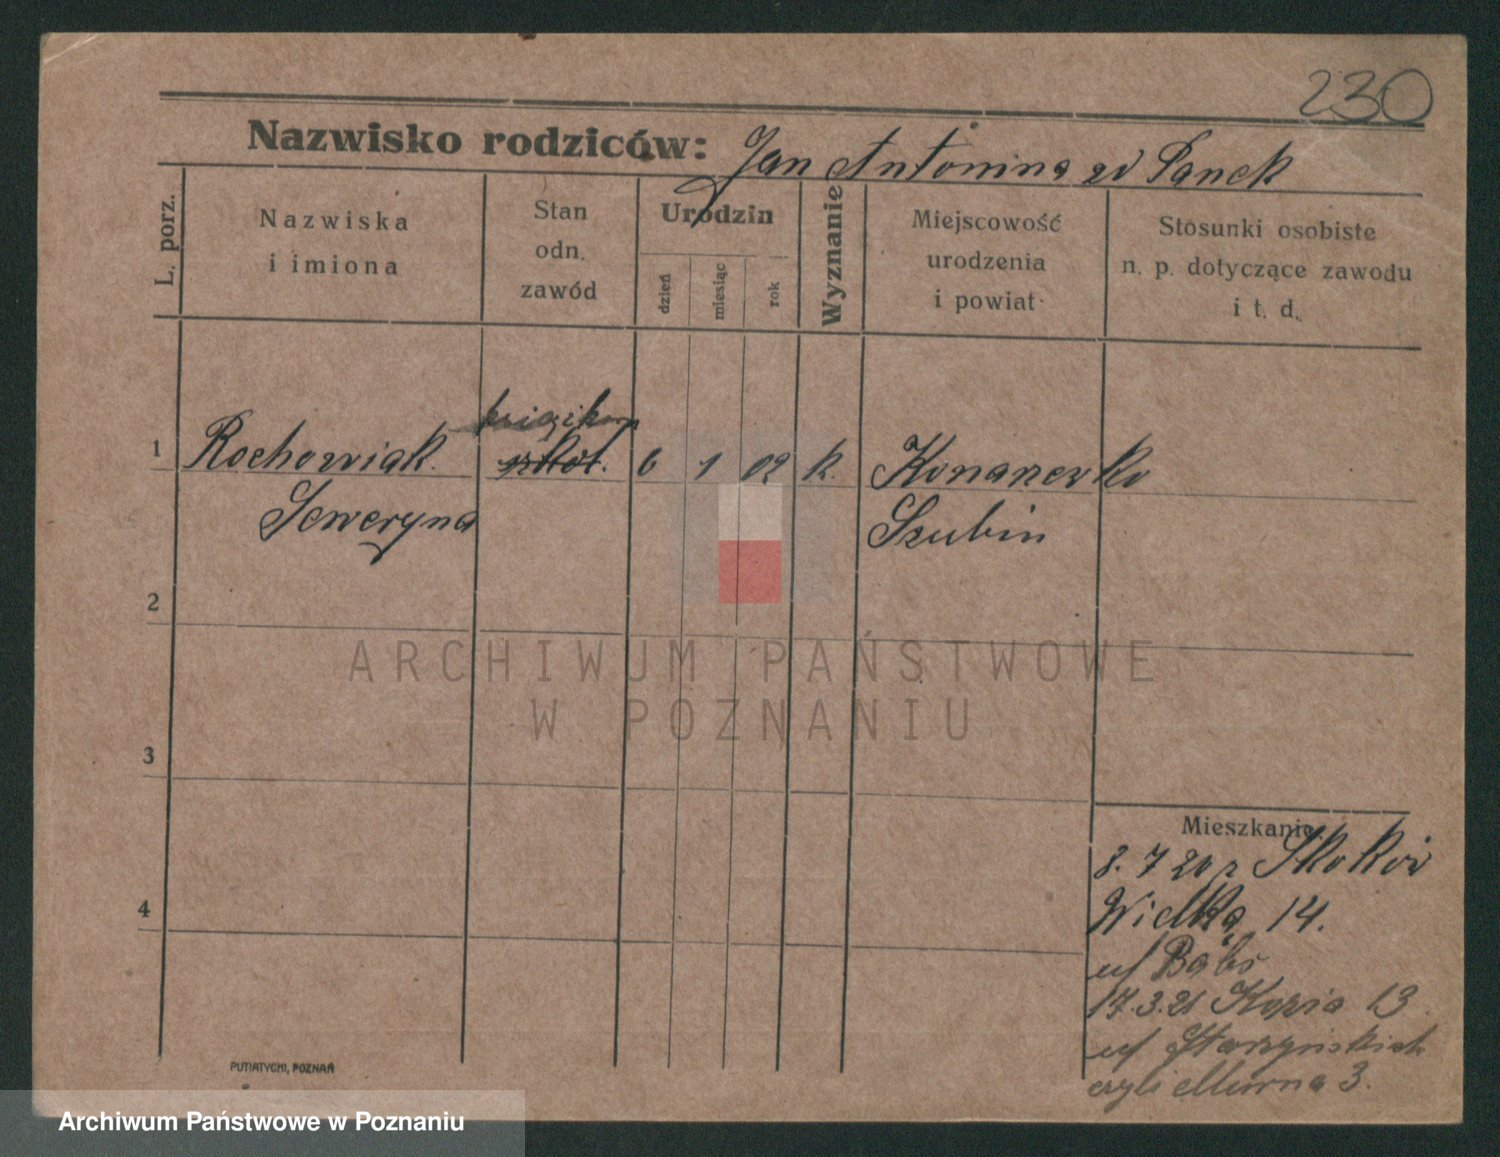 230
Nazwisko rodziców: Jan Antonina zd Panek
L. porz.
Nazwiska
i imiona
Stan
odn.
zawód
Urodzin
dzień
miesiąc
rok
Wyznanie
Miejscowość
urodzenia
i powiat
Stosunki osobiste
n. p. dotyczące zawodu
i t. d.
1 Rochowiak szkol. 6 1 09 k. Konanewko
Seweryna Szubin
2
3
4
Mieszkanie
8. 7 20 z Skoków
Wielka 14.
u/ Bąbs
17.3.21 Kozia 13.
u/ Starzyńskich
czyli Murna 3.
PUTIATYCKI, POZNAŃ
ARCHIWUM PAŃSTWOWE
W POZNANIU
Archiwum Państwowe w Poznaniu